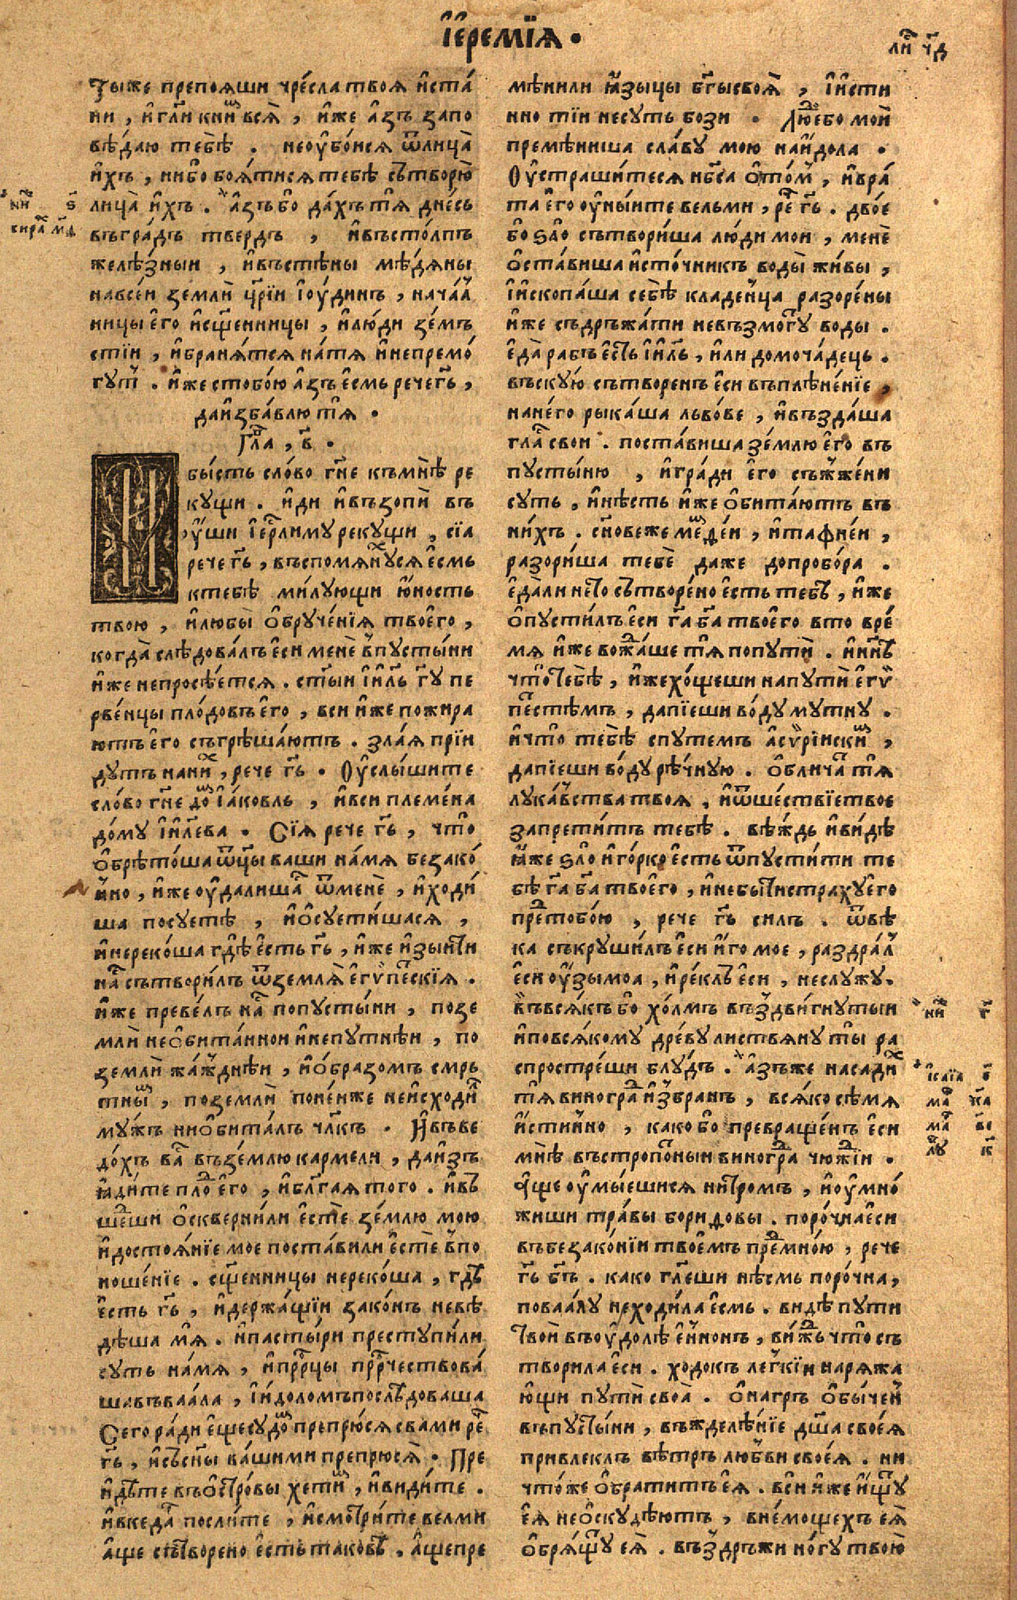 І҆еремїѧ •
лⷭ҇т ч҃д
Тыже препоѧши чре́сла твоѧ̀ и҆ста́
ни , и҆гл҃и книⷨ всѧ̀ , и҆же а҆зъ запо
вѣ́даю тебѣ̀ . неоу҆бо́исѧ ѿлица̀
и҆хъ , нибо боѧ́тисѧ тебѣ̀ сътворю̀
лица̀ и҆хъ . а҆зъ бо да́хъ тѧ̀ дне́сь
въгра́дъ твердъ , и҆въсто́лпъ
желѣ́зныи , и҆въстѣ́ны мѣ́дѧны
навсе́и землѝ цр҃їи і҆ю́динъ , нача́л
ницы е҆го̀ и҆сщ҃енницы , и҆лю́ди зе́мъ
стїи , и҆бранѧ́тсѧ на́тѧ и҆непремо́
гутⷮ . и҆же стобо́ю а҆зъ е҆смь рече гь҃ ,
даи҆зба́влю тѧ̀ •
Гла҃ , в҃ •
И
бы́сть сло́во гн҃е къмнѣ̀ ре
кущи . и҆ди и҆възопѝ въ
у҆́ши і҆ерⷭ҇лиму рекущи , сїа
рече гь҃ , въспомѧну́хсѧ е҆смь
ктебѣ̀ ми́лующи ю҆́ность
твою , и҆любы̀ о҆бруче́нїѧ твоего̀ ,
когда̀ слѣ́довалъ е҆си менѐ в̾пусты́ни
и҆же непросѣ́етсѧ . ст҃ыи і҆и҃ль гу҃ пе
рве́нцы пло́довъ е҆го̀ , вси и҆же пожира
ютъ е҆го̀ съгрѣша́ютъ . зла́ѧ прїи
дутъ наниⷯ , рече гь҃ • Оу҆слы́шите
сло́во гн҃е доⷨ і҆а́ковль , и҆вси племе́на
до́му і҆и҃лева • Сїѧ рече гь҃ , что̀
ѡ҆брѣто́ша ѿц҃ы ваши на́мѧ безако́
нно , и҆же оу҆дали́шаⷭ ѿменѐ , и҆ходи́
ша посуетѣ̀ , и҆ѡ҆суети́шасѧ ,
и҆нереко́ша гдѣ̀ е҆́сть гь҃ , и҆же и҆зы́тїи
наⷭ сътвори́лъ ѿземлѧ̀ е҆гѵ́петскїѧ .
и҆же преве́лъ наⷭ попусты́ни , позе
млѝ неѡ҆бита́ннои и҆непутнѣ́и , по
землѝ жа́жднѣи , и҆ѡ҆́бразомъ смрь
тныⷨ , поземлѝ поне́иже неи҆схо́ди
му́жъ ниѡ҆бита́лъ чл҃къ . И҆въве
до́хъ ваⷭ въземлю кармели , даи҆зъ
ꙗ҆ди́те плоⷣ е҆го̀ , и҆блг҃аѧ того . и҆въ
шеⷣши ѡ҆скверни́ли е҆стѐ зе́млю мою
и҆достоѧ́нїе мое поста́вили е҆стѐ в̾по
ноше́нїе . сщ҃е́нницы нереко́ша , гдѣ̀
е҆́сть гь҃ , и҆держа́щїи зако́нъ невѣ́
дѣша мѧ̀ . и҆пасты́ри преступи́ли
суть на́мѧ , и҆прⷪ҇рцы прⷪ҇рчествова́
шавъваа́ла , і҆и҆доломъпослѣ́доваша
Сего ра́ди е҆щесу́доⷨ препрю́сѧ свами реⷱ
гь҃ , и҆съсн҃ы ва́шими препрюсѧ̀ . Пре
и҆дѣ́те въѡ҆стро́вы хетиⷨ , и҆ви́дите .
и҆вкедаⷬ посли́те , и҆смотри́те велми
а҆ще сътворено е҆́сть таково̀ . а҆щепре
мѣни́ли ꙗ҆зы́цы бг҃ы своѧ̀ , і҆и҆сти
нно тїи несуть бози • Лю́діебо мои҆
премѣни́ша сла́ву мою наи҆дола .
Оу҆страши́тесѧ нб҃са о҆томⷨ , и҆вра́
та е҆го̀ оу҆ны́ите вельми , реⷱ гь҃ . дво́е
бо ѕло сътвори́ша лю́ди мои , менѐ
ѡ҆ста́виша и҆сто́чникъ воды̀ жи́вы ,
і҆и҆скопа́ша себѣ̀ кладе́нца разоре́ны
и҆же съдръжа́ти невъзмо́гу воды .
е҆да̀ рабъ е҆́сть і҆и҃ль , и҆ли домоча́дець .
въскую сътворенъ е҆си въплѣне́нїе ,
нане́го рыка́ша льво́ве , и҆възда́ша
глⷭ҇а свои . поста́виша зе́млю е҆го̀ въ
пусты́ню , и҆гра́ди е҆го̀ съжже́ни
суть , и҆нѣ́сть и҆же ѡ҆бита́ютъ въ
ни́хъ . сн҃овеже меⷨде́и , и҆тафне́и ,
разори́ша тебѐ даже допробо́ра .
е҆да́ли не́то сътворе́но е҆сть тебѣ̀ , и҆же
ѡ҆пусти́лъ е҆си га҃ ба҃ твоего вто вре́
мѧ и҆же вожⷣаше тѧ̀ попутѝ . и҆ннѣ҃
что̀ тебѣ̀ , и҆жехо́щеши напутѝ е҆гѵ
пеⷭтѣмъ , дапїеши во́ду мутну .
и҆что̀ тебѣ̀ спутемъ а҆сѵрі́искиⷨ ,
дапїеши во́ду рѣ́чную . ѡ҆блича́тⷭ тѧ̀
лука́вства твоѧ̀ , и҆ѿше́ствїе твое
запрети́тъ тебѣ̀ . вѣ́ждь и҆ви́дѣ
ꙗ҆́же ѕло и҆го́рко е҆́сть ѿпусти́ти те
бѣ̀ га҃ ба҃ твоего̀ , и҆небы́ти стра́ху е҆го
преⷣтобо́ю , рече гь҃ силъ . ѿвѣ
ка съкруши́лъ е҆си и҆́го мое , раздра́л
е҆си оу҆́зы моа , и҆ре́клъ е҆си , неслу́жу .
въвсѧ́къ бо хо́лмъ въздви́гнутыи
и҆повсѧ́кому дре́ву листвѧ́ну ты ра
спростре́ши блу́дъ . а҆зъже насадиⷯ
тѧ̀ винограⷣ и҆збранъ , всѧ́ко сѣмѧ
и҆́стинно , како бо превраще́нъ е҆си
мнѣ̀ въстропо́тныи виногра́ⷣ чю́жⷣїи .
а҆ще оу҆мы́ешисѧ ни́тромъ , и҆оу҆мно́
жиши тра́вы бориⷮовы . поро́чна е҆си
въбезако́нїи твое́мъ преⷣмно́ю , рече
гь҃ бг҃ъ . како гл҃еши нѣ́смь поро́чна ,
поваа́лу неходи́ла е҆смь . ви́дѣ пути
твоѝ въоу҆до́лѣ е҆нномъ , ви́жⷣь что̀ съ
твори́ла е҆си . ходо́къ ле́гкїи наржа
ю҆щи пути̑ своа . о҆нагръ ѡ҆бы́чен
въпусты́ни , въжделѣ́нїе дш҃а своеѧ̀
привле́клъ вѣ́тръ любви своеѧ̀ . ни
кто́же ѡ҆брати́тъ еѧ̀ . вси и҆же и҆щу҆
еѧ̀ неѡ҆скудѣ́ютъ , вне́мощехъ еѧ̀
ѡ҆брѧ́щу еѧ̀ . въздръжи но́гу твою̀
ниⷤ ѕ҃
вираⷯ м҃д
ниⷤ г҃
і҆са́їа е҃
маⷴ к҃а
маⷬ в҃і
лу к҃